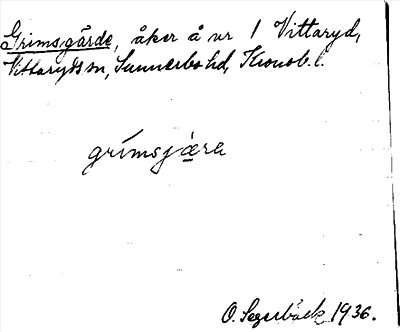 Grimsgärde, åker å nr 1 Vittaryd,
Vittaryds sn, Sunnerbo hd, Kronob. l.
grímsjæ̀ra
O. Segerbäck 1936.